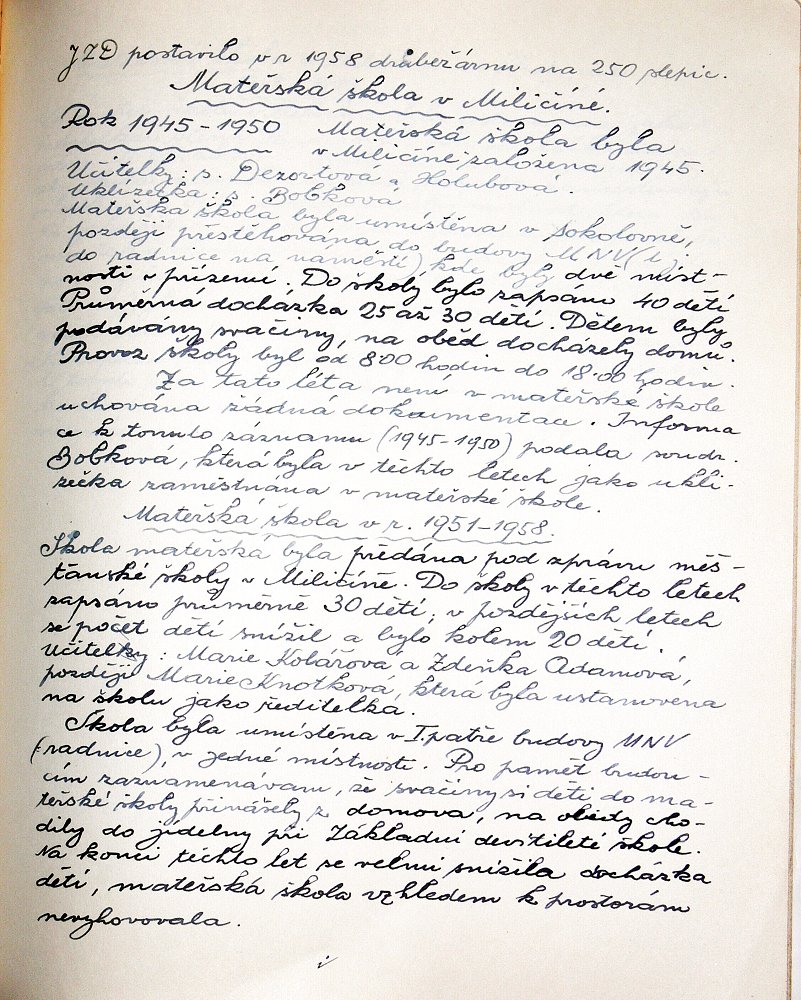 JZD postavilo v r 1958 drůbežárnu na 250 slepic.
Mateřská škola v Miličíně.
Rok 1945-1950 Mateřská škola byla
v Miličíně založena 1945.
Učitelky: s. Dezortová a Holubová.
Uklizečka: s. Bobková
Mateřská škola byla umístěna v Sokolovně,
později přestěhována do budovy MNV (t.j.
do radnice na náměstí) kde byly dvě míst-
nosti v přízemí. Do školy bylo zapsáno 40 dětí
Průměrná docházka 25 až 30 dětí. Dětem byly
podávány svačiny, na oběd docházely domů.
Provoz školy byl od 8:00 hodin do 18:00 hodin.
Za tato léta není v mateřské škole
uchována žádná dokumentace. Informa
ce k tomuto záznamu (1945-1950) podala soudr.
Bobková, která byla v těchto letech jako ukli-
zečka zaměstnána v mateřské škole.
Mateřská škola v r. 1951-1958.
Škola mateřská byla předána pod zprávu měš-
ťanské školy v Miličíně. Do školy v těchto letech
zapsáno průměrně 30 dětí, v pozdějších letech
se počet dětí snížil a bylo kolem 20 dětí.
Učitelky: Marie Kolářová a Zdeňka Adamová,
později Marie Knotková, která byla ustanovena
na školu jako ředitelka.
Škola byla umístěna v I. patře budovy MNV
(radnice), v jedné místnosti. Pro paměť budou-
cím zaznamenávám, že svačiny si děti do ma-
teřské školy přinášely z domova, na obědy cho-
dily do jídelny při Základní devítileté škole.
Na konci těchto let se velmi snížila docházka
dětí, mateřská škola vzhledem k prostorám
nevyhovovala.